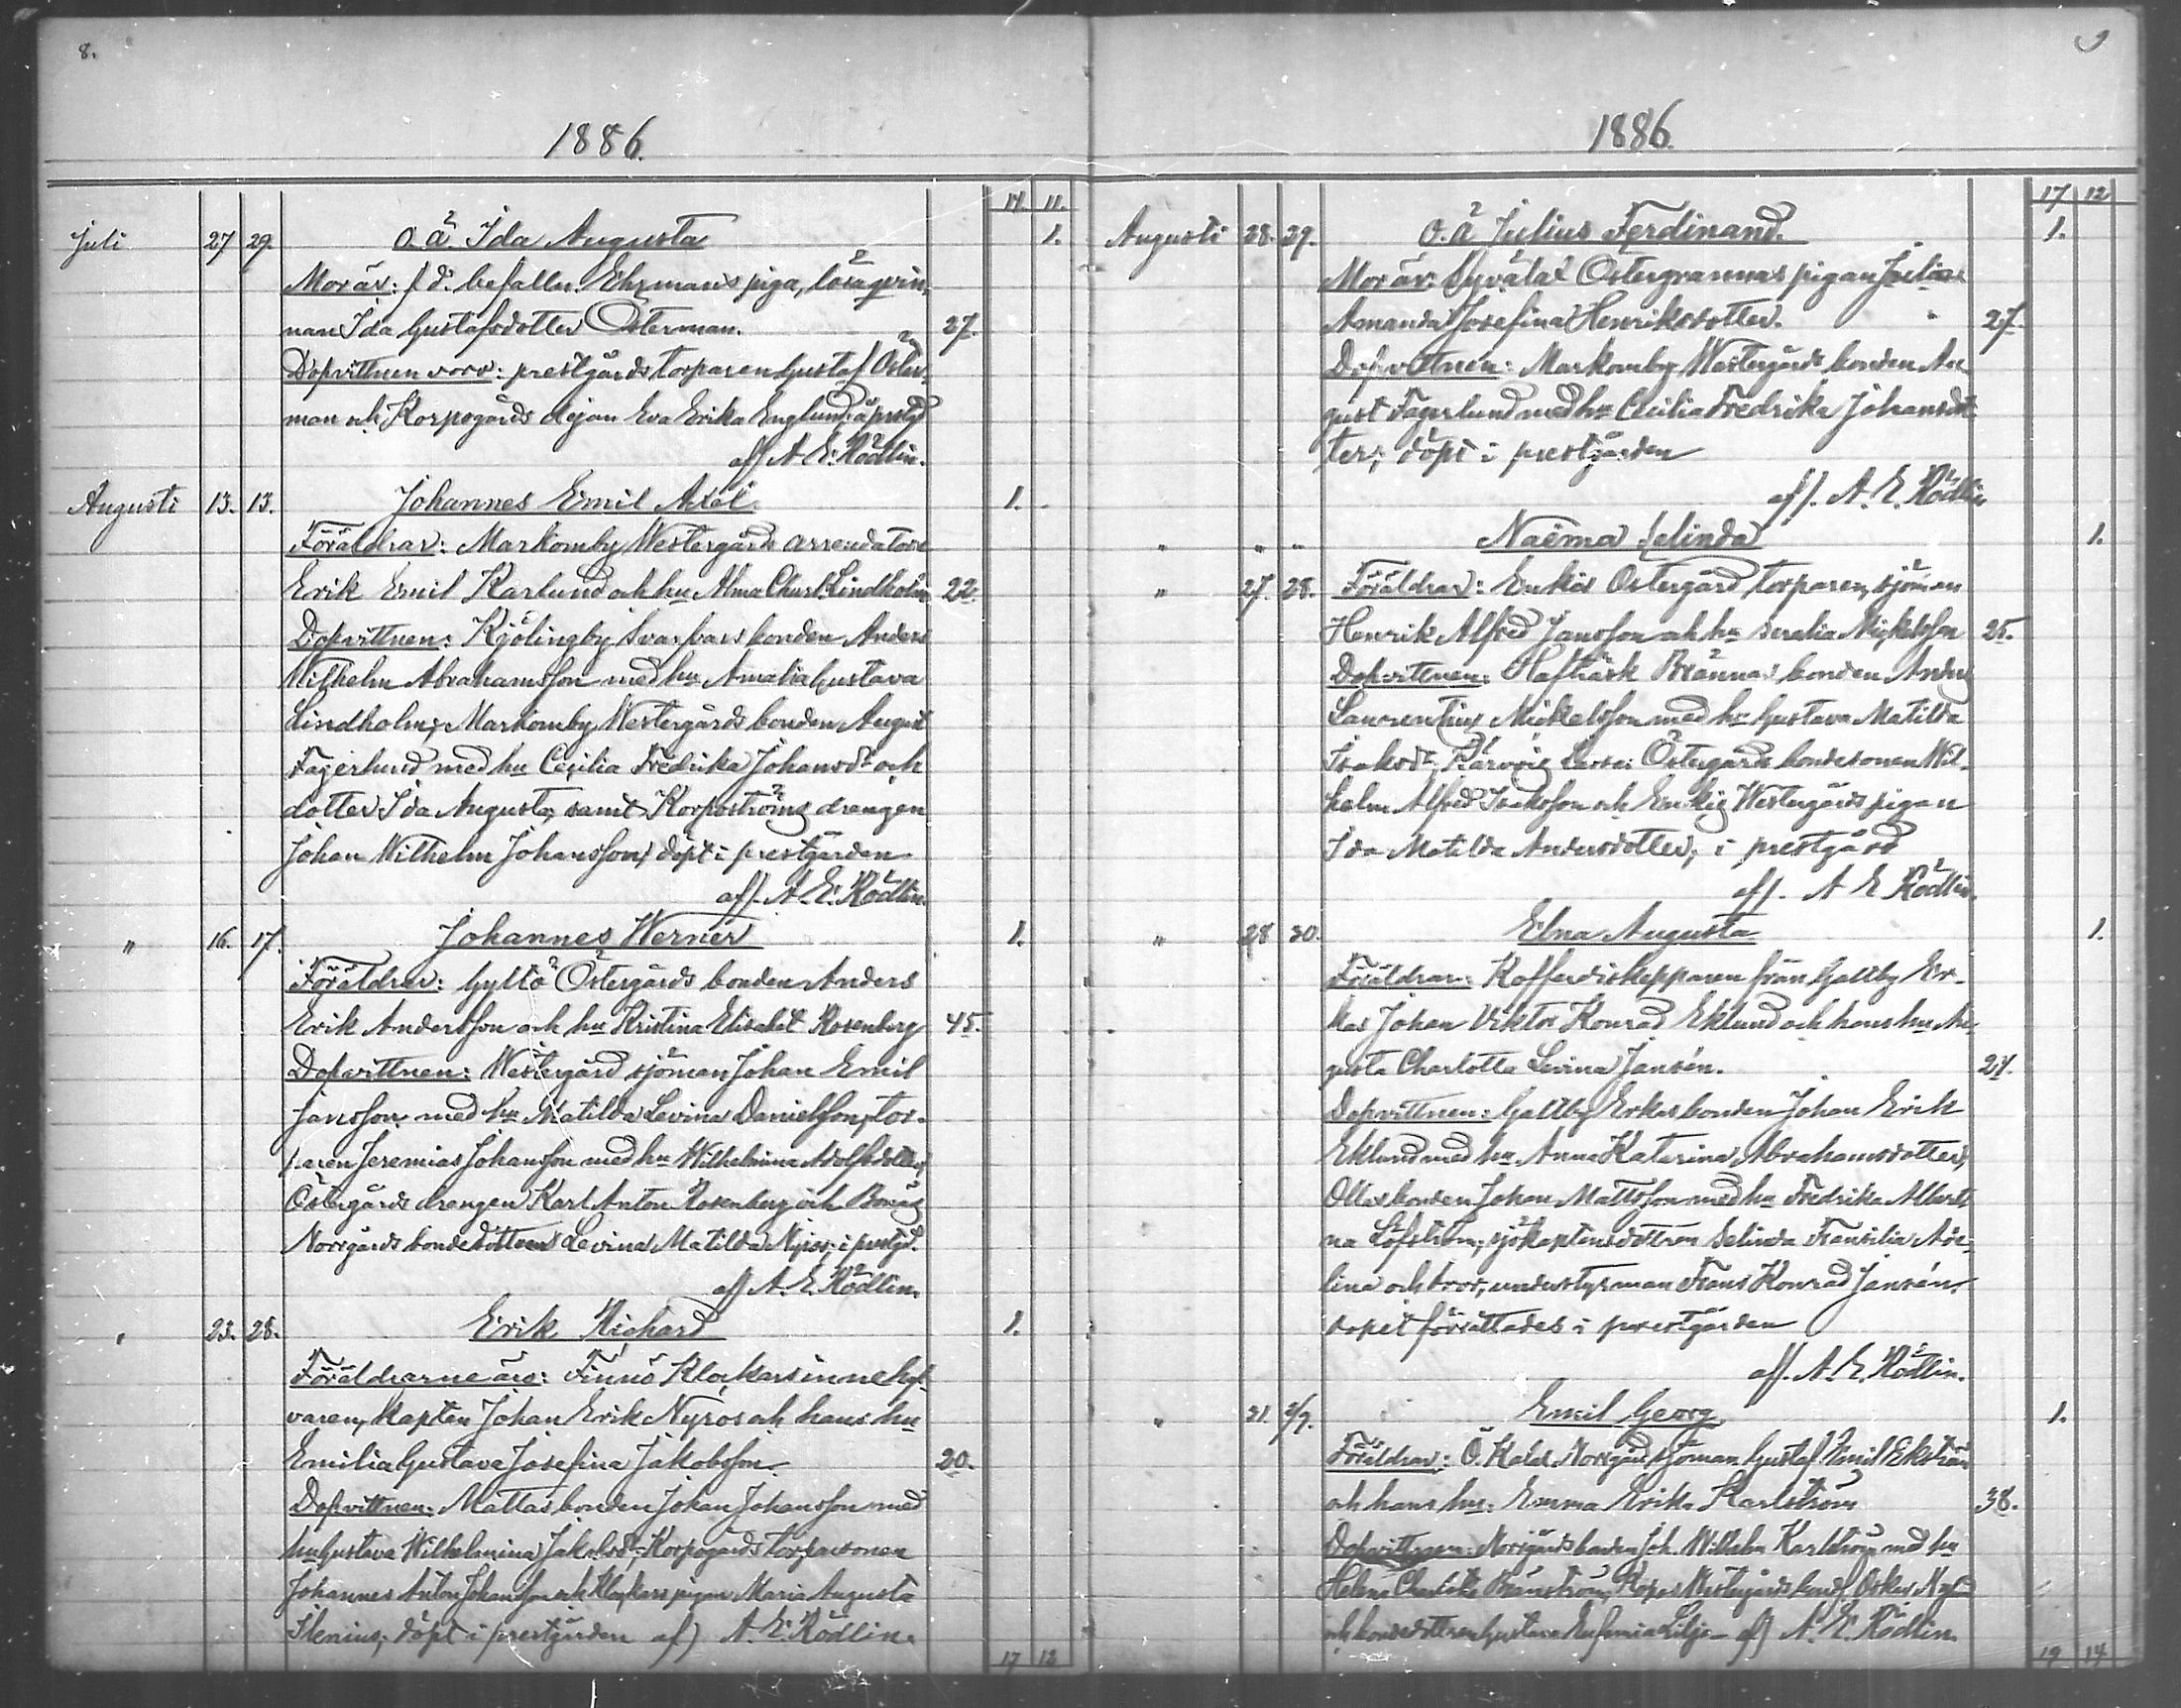 8.
1886.
14. 11.
Juli 27. 29. o. ä. Ida Augusta 1.
Mor är: f. d. befalln. Ehrmans piga, lösagvin-
nan Ida Gustafsdotter Österman. 27.
Dopvittnen voro: prestgårds torparen Gustaf Öster-
man och Korpogårds dejan Eva Erika Englund; å prestgd
af A. E. Rödlin.
Augusti 13. 13. Johannes Emil Axel 1.
Föräldrar: Markomby Westergårds arrendatorn
Erik Emil Karlund och hu Alma Charl. Lindholm 22.
Dopvittnen: Kjölingby Svarfvars bonden Anders
Wilhelm Abrahamsson med hu Amalia Gustava
Lindholm; Markomby Westergårds bonden August
Fagerlund med hu Cecilia Fredrika Johansdr och
dotter Ida Augusta, samt Korpoströms drengen
Johan Wilhelm Johansson; döpt i prestgården
af. A. E. Rödlin.
" 16. 17. Johannes Werner 1.
Föräldrar: Gyltö Östergårds bonden Anders
Erik Andersson och hu Kristina Elisabet Rosenberg 45.
Dopvittnen: Westergård sjöman Johan Emil
Jansson med hu Matilda Levina Danielsson, tor-
paren Jeremias Johansson med hu Wilhelmina Adolfsdotter,
Östergårds drengen Karl Anton Rosenberg och
Norrgårds bondedottren Levina Matilda Nyros; i prestgd.
af A. E. Rödlin.
" 23. 28. Erik Richard 1.
Föräldrarne äro: Finnö Klockars innehaf-
varen, kapten Johan Erik Nyros och hans hu
Emilia Gustava Josefina Jakobsson. 20.
Dopvittnen: Mattas bonden Johan Johansson med
hu Gustava Wilhelmina Jakobsdr, Korpogårds torparsonen
Johannes Anton Johansson och Klockars pigan Maria Augusta
döpt i prestgården af A. E. Rödlin.
17 12
9
1886.
17 12
Augusti 28. 29. o. ä. Julius Ferdinand. 1.
Mor är: Östergrannas pigan
Amanda Josefina Henriksdotter. 27.
Dopvittnen: Markomby Westergårds bonden Au-
gust Fagerlund med hu Cecilia Fredrika Johansdot-
ter; döpt i prestgården
af. A. E. Rödlin
" " " Naëma Selinda 1.
" 27. 28. Föräldrar: Östergård torparen, sjöman
Henrik Alfred Jansson och hu Serafia 25.
Dopvittnen: Brännas bonden Anders
Laurentius Mickelsson med hu Gustava Matilda
Isaksdr; Östergårds bondesonen Wil-
helm Alfred Isaksson och Westergårds pigan
Ida Matilda Andersdotter; i prestgård
af. A. E. Rödlin.
" 28 30. Elna Augusta 1.
Föräldrar: Kofferdiskepparen från Galtby Er-
kas Johan Viktor Konrad Eklund och hans hu Au-
gusta Charlotta Levina Jansén. 24.
Dopvittnen: Galtby Erkas bonden Johan Erik
Eklund med hu Anna Katarina Abrahamsdotter,
Ollas bonden Johan Mattsson med hu Fredrika Alberti-
na Löfström; sjökaptensdottren Selinda
och understyrman Frans Konrad Jansén.
dopet förrättades i prestgården
af. A. E. Rödlin.
" 31. 2/9. Emil Georg 1.
Föräldrar: Ö. Kalax Norrgård sjöman Gustaf Emil Ekström
och hans hu: Emma Erika Karlström 38.
Dopvittnen: Norrgårds bonden Joh. Wilhelm Karlström med hu
Helena Charlotta Westergårds
och bondedottren Gustava Eufemia Lilja af A. E. Rödlin.
19 14